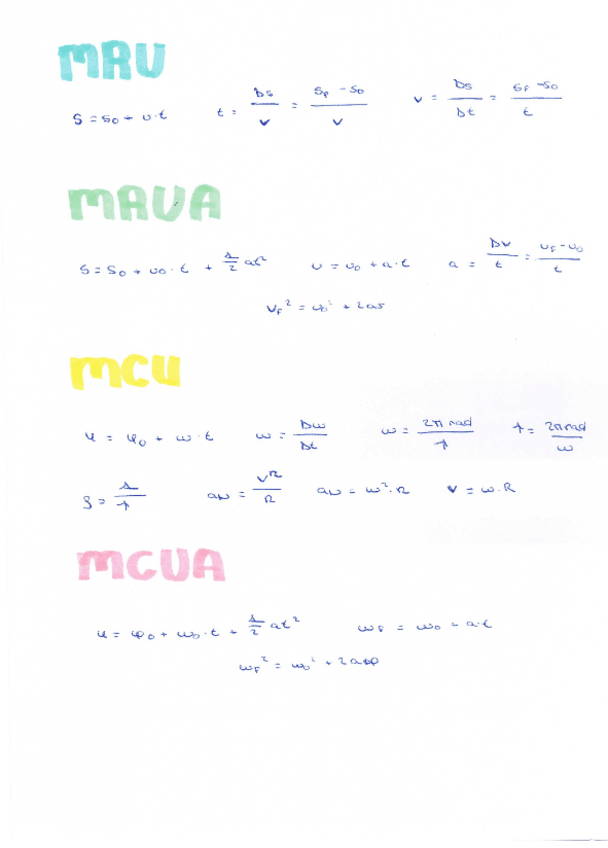 MRU
S = S₀ + v·t t = Δs/v = Sf - S₀/v v = Δs/Δt = Sf - S₀/t
MRUA
S = S₀ + v₀·t + 1/2 at² v = v₀ + a·t a = Δv/t = vf - v₀/t
vf² = v₀² + 2as
MCU
φ = φ₀ + w·t w = Δw/Δt w = 2π rad/T T = 2π rad/w
f = 1/T aN = v²/R aN = w²·R v = w·R
MCUA
φ = φ₀ + w₀·t + 1/2 at² wf = w₀ + a·t
wf² = w₀² + 2aΔφ